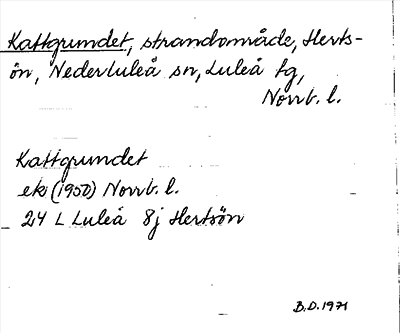 Kattgrundet, strandområde, Herts-
ön, Nederluleå sn, Luleå tg,
Norrb. l.
Kattgrundet
ek (1950) Norrb. l.
24 L Luleå 8j Hertsön
B.D. 1971